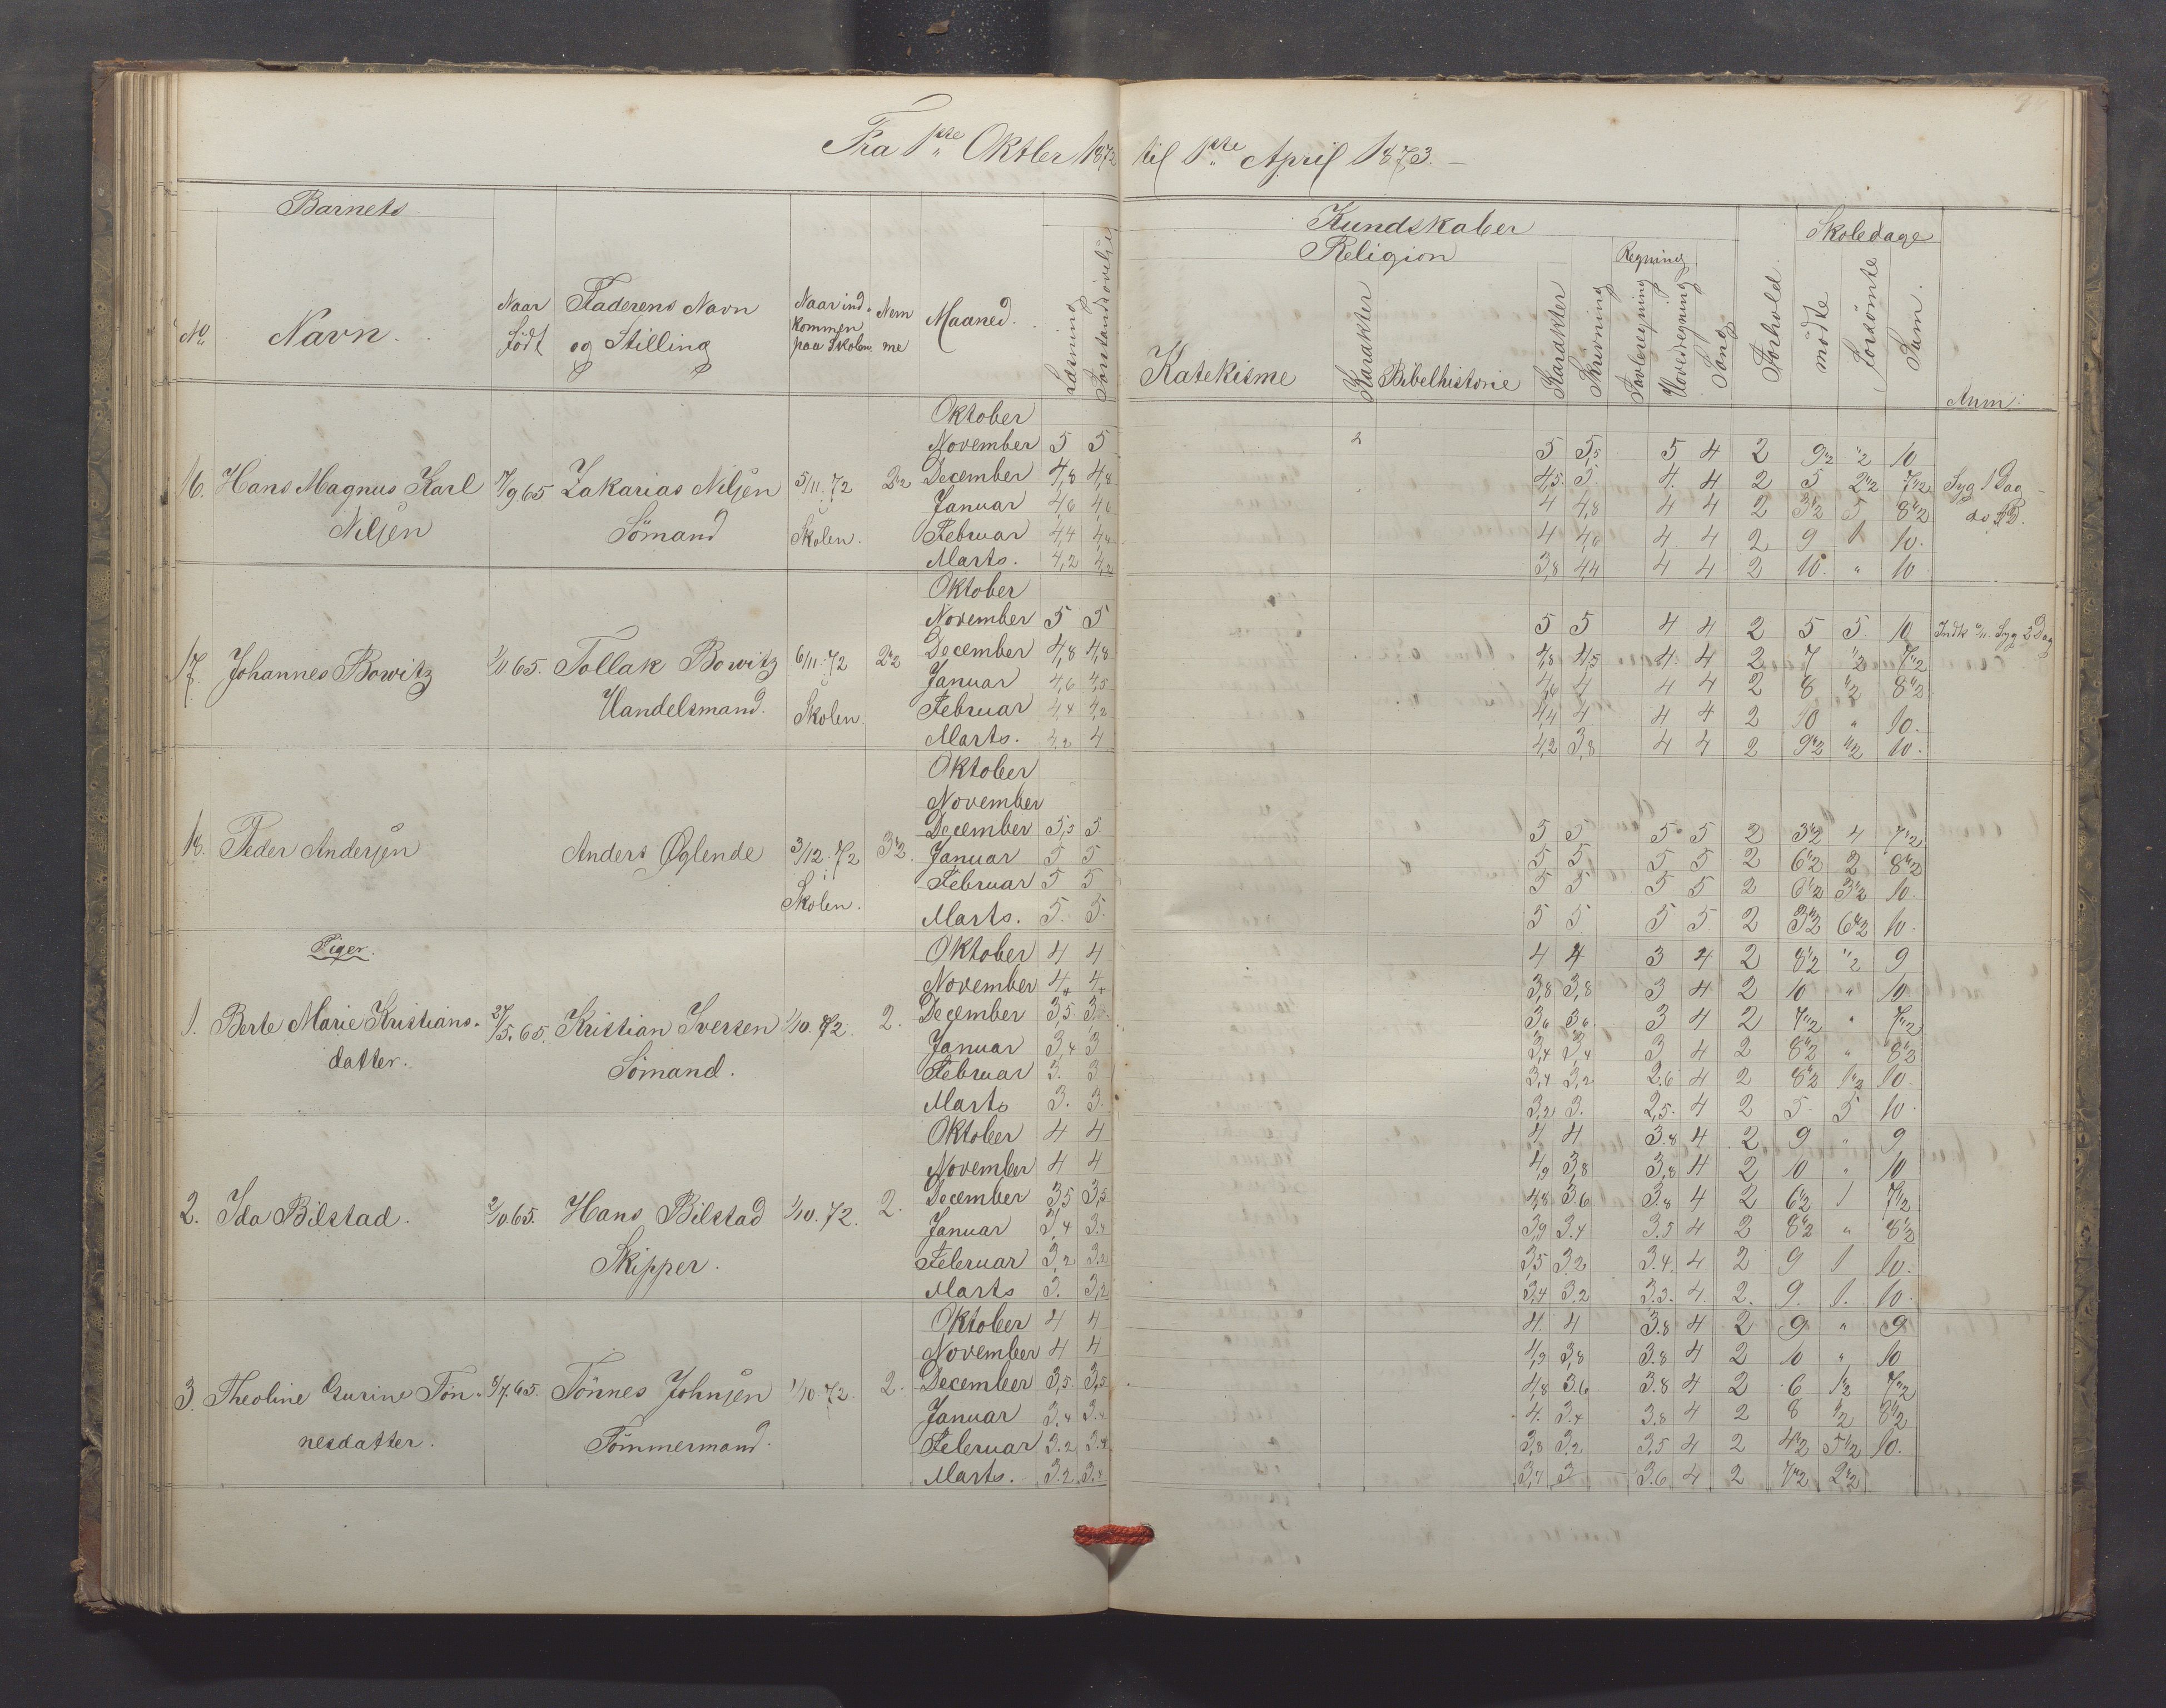 Fra 1ste Oktber 1872 til 1ste April 1873.
Barnets
Kundskaber Skoledage
Religion Regning
No Navn. Naar Født Faderens Navn og Stilling Naar indkommen paa Skolen Nemme Maaned. Læsning Forstandsøvelse Katekisme Karakter Bibelhistorie Karakter Skrivning Tavleregning Hovedregning Sang Forhold mødte forsömte Sum. Anm:
Oktober
November 5 5 5 5,5 5 4 2 9"2 "2 10
16. Hans Magnus Karl 7/9 65 Zakarias Nilsen 5/11.72 2"2 December 4,8 4,8 4,5. 5. 4. 4 2 5 2"2 7"2 Syg 1 Dag
Januar 4,6 4,6 4 4,8 4 4 2 3"2 5 8"2 do
Nilsen Sömand Skolen. Februar 4,4 4,4 4 4,6 4 4 2 9 1 10.
Marts. 4,2 4,2 3,8 4,4 4 4 2 10. " 10
Oktober
November 5 5 5 5 4 4 2 5 5. 10 Syg 5 Dag
17. Johannes Bowitz 1/11 65. Tollak Bowitz 6/11.72 2"2 December 4,8 4,8 4,8 4,5 4. 4 2 7 "2 7"2
Januar 4,6 4,5 4,6 4 4 4 2 8 "2 8"2
Handelsmand. Skolen. Februar 4,4 4,2 4,4 4 4 4 2 10 " 10.
Marts. 4,2 4 4,2 3,8 4 4 2 9"2 "2 10.
Oktober
November
December 5,5 5 5 5 5 5 2 3"2 4 7"2
18. Peder Andersen Anders Øglende 3/12.72 3"2. Januar 5 5 5 5 5 5 2 6"2 2 8"2
i Skolen. Februar 5 5 5 5 5 5 2 6"2 3"2 10.
Marts. 5. 5. 5 5 5 5. 2 3"2 6"2 10.
Piger.
Oktober 4 4 4 4 3 4 2 8"2 "2 9
November 4 4 3,8 3,8 3 4 2 10 " 10.
1. Berte Marie Kristians- 27/5.65. Kristian Iversen 1/10.72. 2. December 3,5 3,5 3,6 3,6 3 4 2 7"2 " 7"2
Januar 3,4 3 3,4 3,4 3 4 2 8"2 " 8"2
datter. Sömand. Februar 3. 3 3,4 3,2 2.6 4 2 8"2 1"2 10.
Marts 3. 3. 3,2 3. 2,5. 4 2 5. 5 10.
Oktober 4 4 4 4 3.8 4 2 9 " 9
November 4 4 4,9 3,8 3,8 4 2 10 " 10
2. Ida Bilstad. 2/10 65. Hans Bilstad 1/10.72. 2. December 3,5 3,5 4,8 3.6 3.8 4 2 6"2 1 7"2
Januar 3,4 3.4 3,9 3.4 3.5 4 2 8"2 " 8"2
Skipper. Februar 3,2 3.2 3,5 3.2 3.4. 4 2 9 1 10.
Marts 3. 3,2 3.4 3.2 3.3. 4. 2. 9. 1. 10.
Oktober 4 4 4. 4 3.8 4 2 9 " 9
November 4 4 4,9 3,8 3.8 4 2 10 " 10
3. Theoline Gurine Tön- 8/7.65. Tönnes Johnsen 1/10.72. 2. December 3,5. 3,5 4,8 3.6 3.8 4 2 6 1"2 7"2
Januar 3.4 3.4 4. 3.4 3.8 4 2 8 "2 8"2
nesdatter. Tömmermand. Februar 3.2 3.4 3,8 3,2 3,5 4 2 4"2 5"2 10.
Marts. 3.2 3.4 3,7 3 3.6 4 2 7"2 2"2